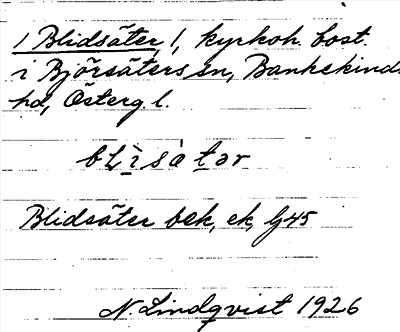 / Blidsäter /, kyrkoh. bost.
i Björsäters sn, Bankekinds
hd, Österg l.
blìsàtər
Blidsäter bek, ek, Gj 45
N. Lindqvist 1926